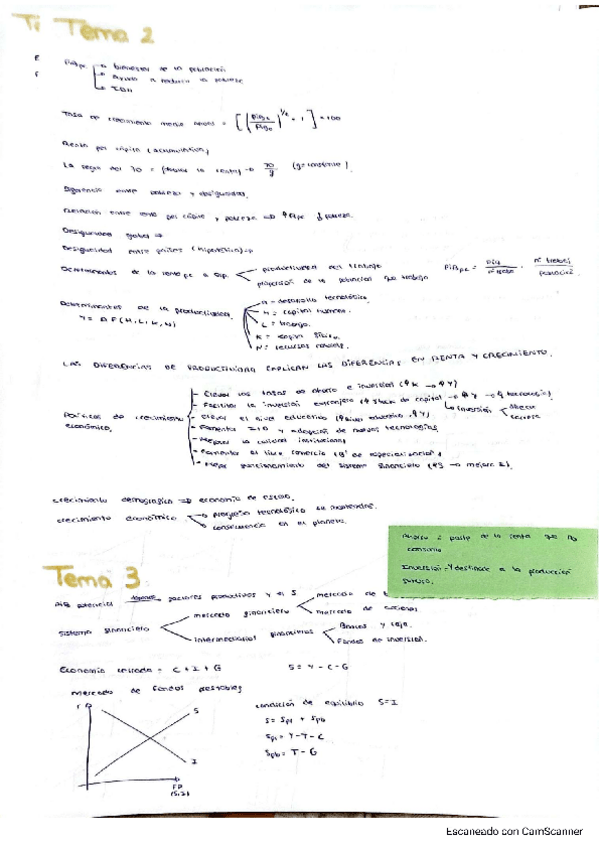 Ti Tema 2
PiBpc → bienestar de la población
→ Ayuda a reducir la pobreza
→ IDH
Tasa de crecimiento medio anual = [(PiBt / PiBo)^1/t - 1] × 100
Renta per cápita (acumulativa)
La regla del 70 = (doblar la renta) → 70/g (g=constante).
Diferencia entre pobreza y desigualdad.
Relación entre renta per cápita y pobreza
Desigualdad global ⇒
Desigualdad entre países (hipotética)
Determinantes de la renta pc
productividad del trabajo
proporción de la población que trabaja
PiBpc = PiB / nº trabaj · nº trabaj / población
Determinantes de la productividad
Y = A F (H, L, K, N)
A = desarrollo tecnológico
H = capital humano
L = trabajo
K = capital físico
N = recursos naturales
LAS DIFERENCIAS DE PRODUCTIVIDAD EXPLICAN LAS DIFERENCIAS EN RENTA Y CRECIMIENTO.
Políticas de crecimiento económico
- Elevar las tasas de ahorro e inversión (↑K → ↑Y)
- Facilitar la inversión extranjera (↑ stock de capital → ↑Y → ↑ tecnología)
inversión directa
cartera
- Elevar el nivel educativo (↑ nivel educativo, ↑Y)
- Fomentar I+D y adopción de nuevas tecnologías
- Mejorar la calidad institucional
- Fomentar el libre comercio
- Mejor funcionamiento del sistema financiero (↑S → mejora I).
crecimiento demográfico ⇒ economía de escala.
crecimiento económico → progreso tecnológico
→ consecuencia en el planeta.
Ahorro = parte de la renta que no consumo
Inversión = Y destinada a la producción futura.
Tema 3
PiB potencial depende factores productivos y el S
mercado de
sistema financiero
mercado financiero
mercado de acciones
intermediarios financieros
Bancos y caja.
Fondos de inversión.
Economía cerrada = C + I + G
S = Y - C - G
mercado de fondos prestables
r
S
I
FP
(S,I)
condición de equilibrio S=I
S = Spr + Spb
Spr = Y - T - C
Spb = T - G
Escaneado con CamScanner